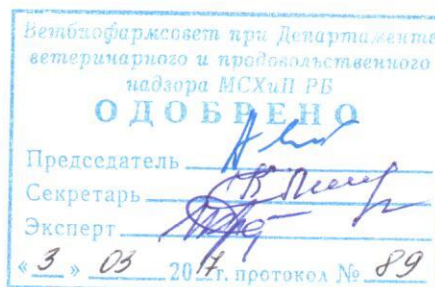 Ветбиофармсовет при Департаменте
ветеринарного и продовольственного
надзора МСХиП РБ
ОДОБРЕНО
Председатель
Секретарь
Эксперт
« 3 » 03 2017г. протокол № 89